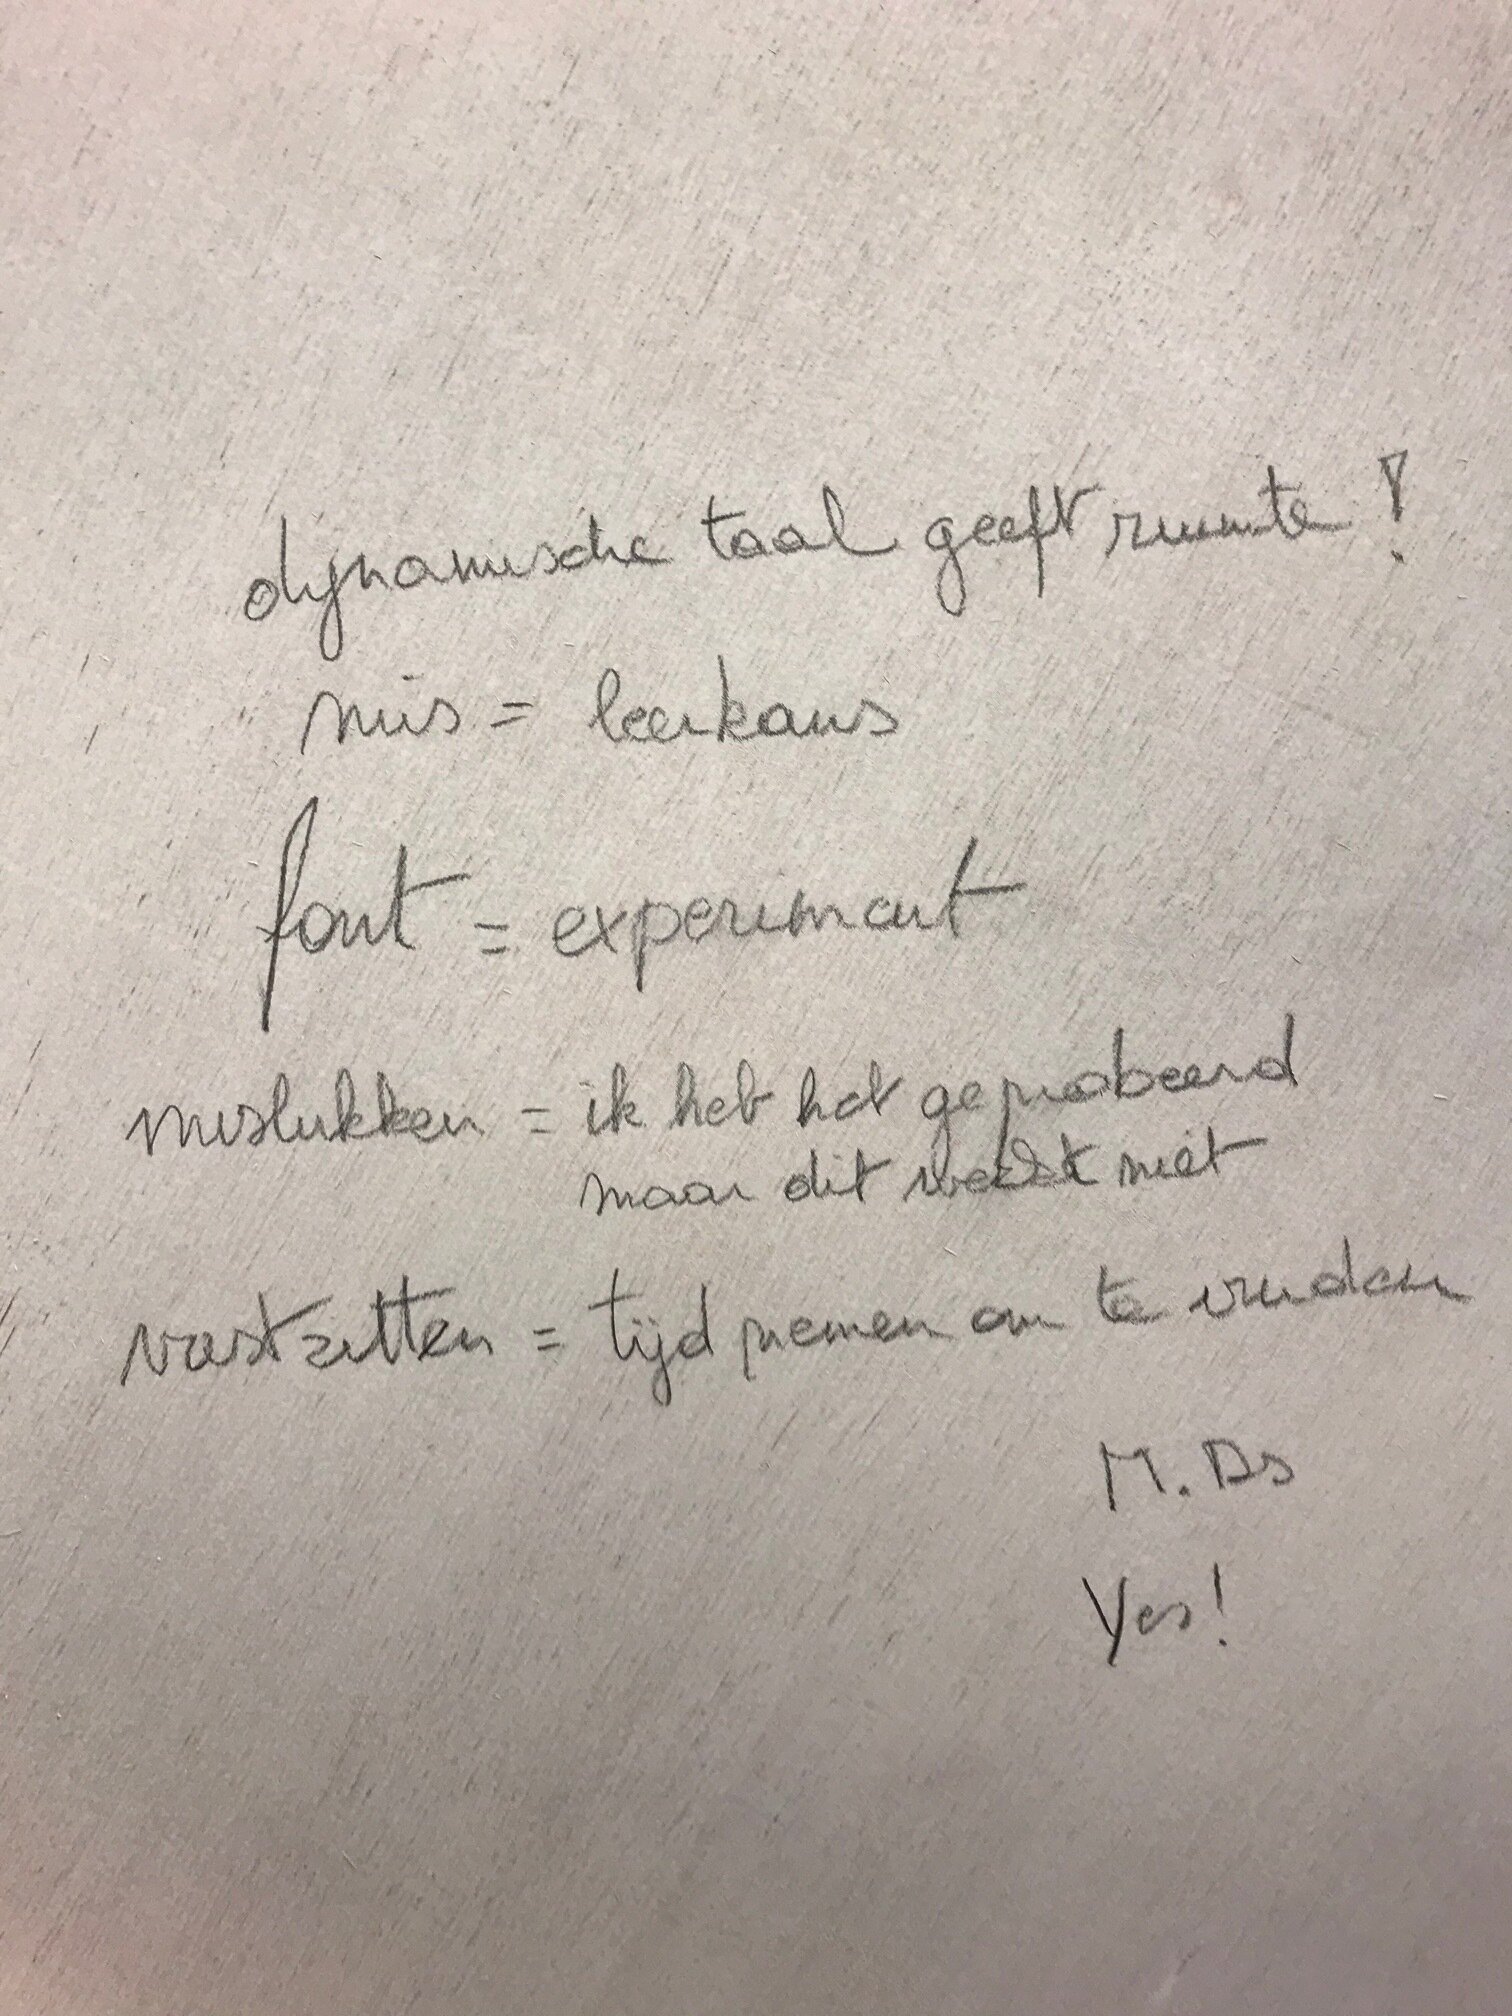 dynamische taal geeft ruimte!
mis = leerkans
fout = experiment
mislukken = ik heb het geprobeerd
maar dit werkt niet
vastzitten = tijd nemen om te vinden
M. Ds
Yes!